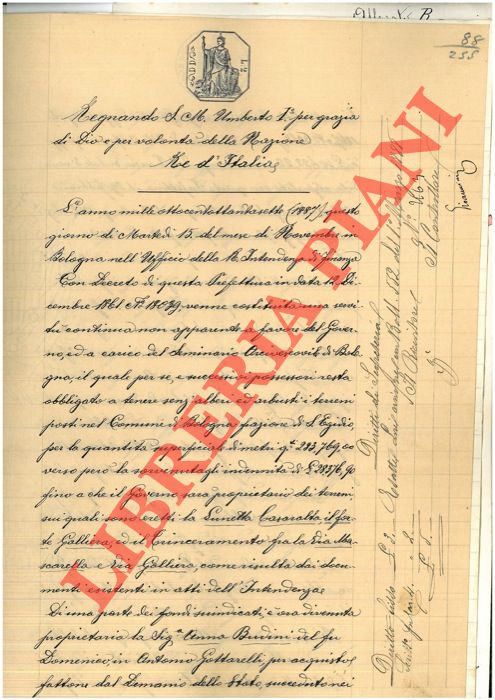 88
255
Regnando S. M. Umberto 1° per grazia
di Dio e per volontà della Nazione
Re d'Italia
L'anno mille ottocentottantasette (1887) questo
giorno di Martedì 15. del mese di Novembre in
Bologna nell'Ufficio della R. Intendenza di finanza
Con Decreto di questa Prefettura in data 12 Di-
cembre 1861 N. 18079, venne costituita una servi-
tù continua non apparente a favore del Gover-
no, ed a carico del Seminario Arcivescovile di Bolo-
gna, il quale per se, e successivi possessori resta
obbligato a tenere senz'alberi ed arbusti i terreni
posti nel Comune di Bologna frazione di S. Egidio,
per la quantità superficiale di metri q.ti 283,769,00
verso però la sovvenutagli indennità di £ 28376,90
fino a che il Governo sarà proprietario dei terreni
sui quali sono eretti la Lunetta Casaralta, il for-
te Galliera, ed il Trinceramento fra la Via Mas-
carella e Via Galliera, come risulta dai docu-
menti esistenti in atti dell'Intendenza
Di una parte dei fondi suindicati, è ora divenuta
proprietaria la Sig.a Anna Budini del fu
Domenico, in Antonio Gottarelli, per acquisto
fattone dal Demanio dello Stato, succeduto nei
Diritti di Segreteria
Diritto fisso £ 2.
£ 8.
Esatte
N° 366
Il Cancelliere
LIBRERIA PIANI